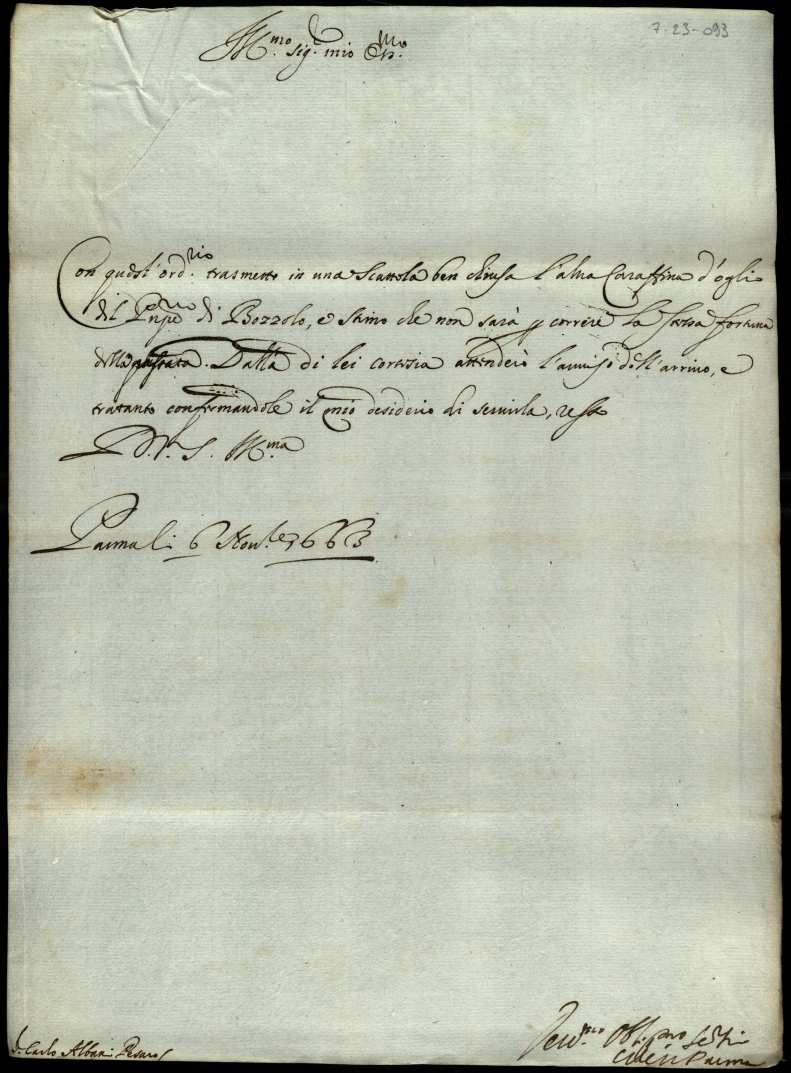 7-23-093
Ill.mo Sig.r mio Oss.mo
Con quest'ord.rio trasmetto in una Scattola ben chiusa l'altra Caraffina d'oglio
del Pnpe di Bozzolo, e stimo che non sarà p correre la stessa fortuna
della passata. Dalla di lei cortesia attenderò l'auuiso dell'arriuo, e
tratanto confirmandole il mio desiderio di seruirla, resto
D. V. S. Ill.ma
Parma li 6 Nou.re 1663
S. Carlo Albani Pesaro
Deu. Obl.mo Ser.